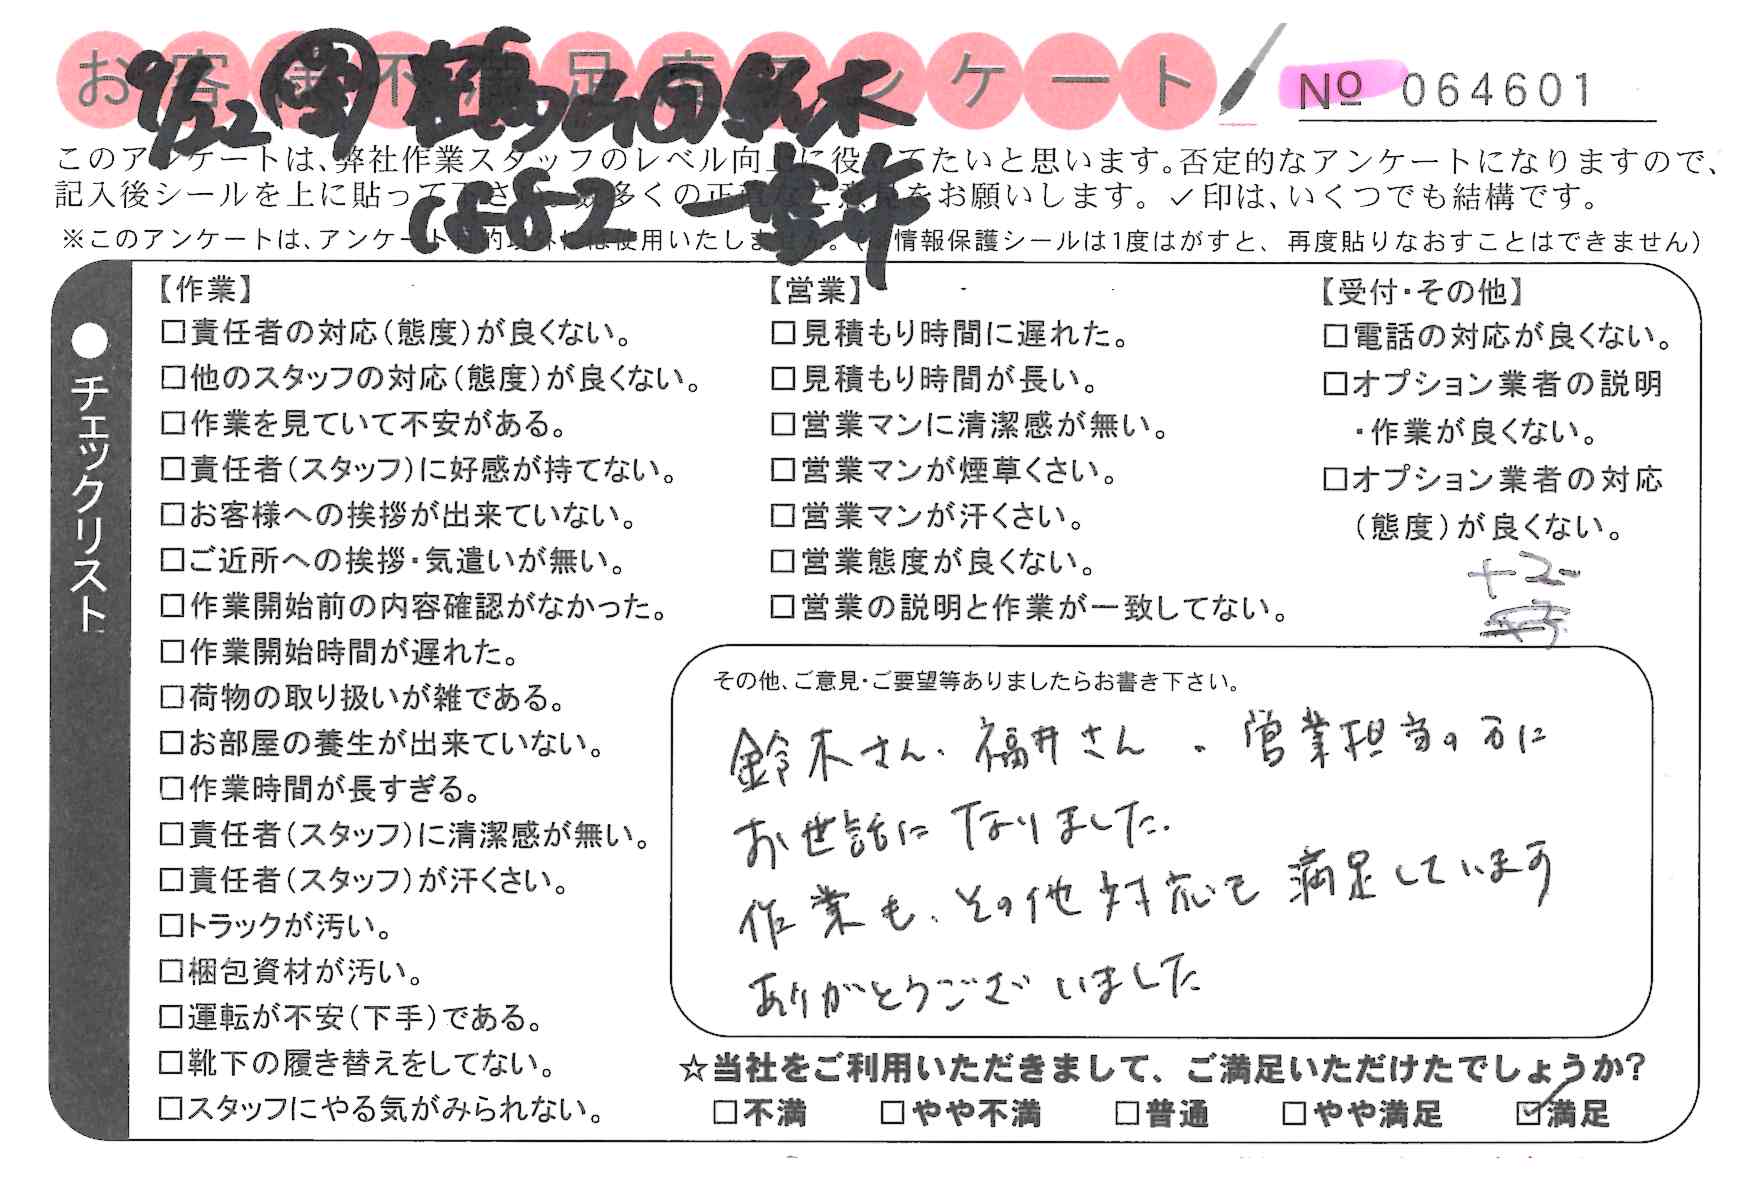 お客様不満足度アンケート
№ 064601
9/22
鈴木
このアンケートは、弊社作業スタッフのレベル向上に役立てたいと思います。否定的なアンケートになりますので、
記入後シールを上に貼って下さい。数多くの正直なご意見をお願いします。✓印は、いくつでも結構です。
※このアンケートは、アンケート目的以外には使用いたしません。(※情報保護シールは1度はがすと、再度貼りなおすことはできません)
●チェックリスト
【作業】
□責任者の対応(態度)が良くない。
□他のスタッフの対応(態度)が良くない。
□作業を見ていて不安がある。
□責任者(スタッフ)に好感が持てない。
□お客様への挨拶が出来ていない。
□ご近所への挨拶・気遣いが無い。
□作業開始前の内容確認がなかった。
□作業開始時間が遅れた。
□荷物の取り扱いが雑である。
□お部屋の養生が出来ていない。
□作業時間が長すぎる。
□責任者(スタッフ)に清潔感が無い。
□責任者(スタッフ)が汗くさい。
□トラックが汚い。
□梱包資材が汚い。
□運転が不安(下手)である。
□靴下の履き替えをしてない。
□スタッフにやる気がみられない。
【営業】
□見積もり時間に遅れた。
□見積もり時間が長い。
□営業マンに清潔感が無い。
□営業マンが煙草くさい。
□営業マンが汗くさい。
□営業態度が良くない。
□営業の説明と作業が一致してない。
【受付・その他】
□電話の対応が良くない。
□オプション業者の説明
・作業が良くない。
□オプション業者の対応
(態度)が良くない。
+2
その他、ご意見・ご要望等ありましたらお書き下さい。
鈴木さん、福井さん、営業担当の方に
お世話になりました。
作業も、その他対応も満足しています
ありがとうございました
☆当社をご利用いただきまして、ご満足いただけたでしょうか?
□不満 □やや不満 □普通 □やや満足 ☑満足